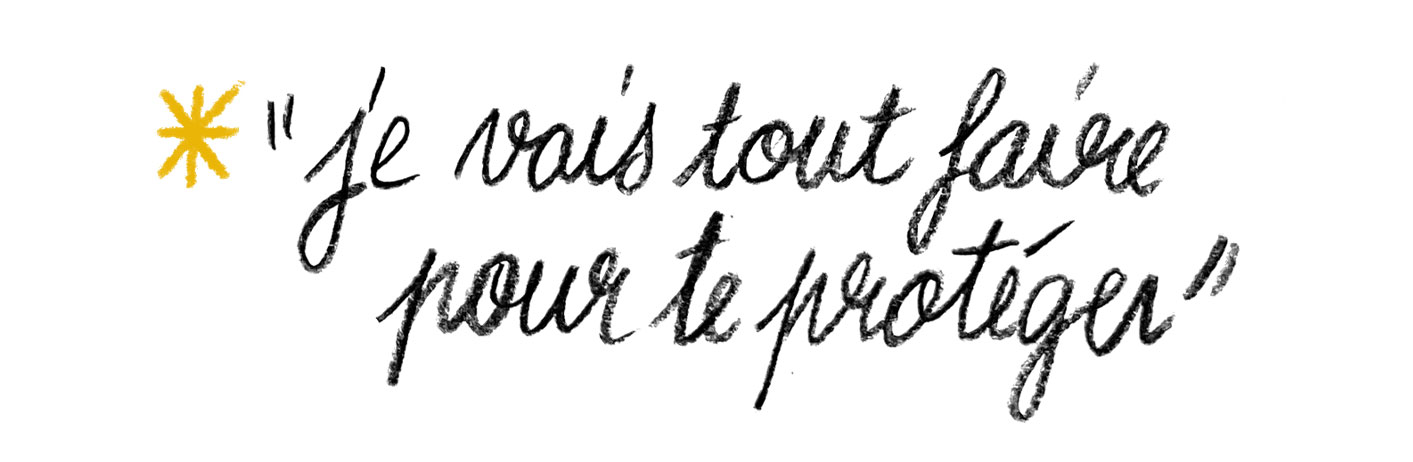 * "je vais tout faire
pour te protéger"